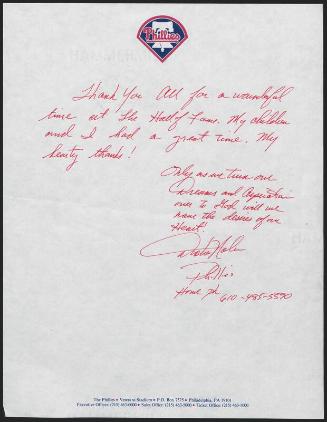 Phillies
Thank You All for a wonderful
time at the Hall of Fame. My children
and I had a great time. My
hearty thanks!
Only as we turn our
Dreams and Aspiration
over to God will we
have the desires of our
Heart!
Phillies
Home Ph 610-485-5590
The Phillies • Veterans Stadium • P.O. Box 7575 • Philadelphia, PA 19101
Executive Offices: (215) 463-6000 • Sales Office: (215) 463-5000 • Ticket Office: (215) 463-1000